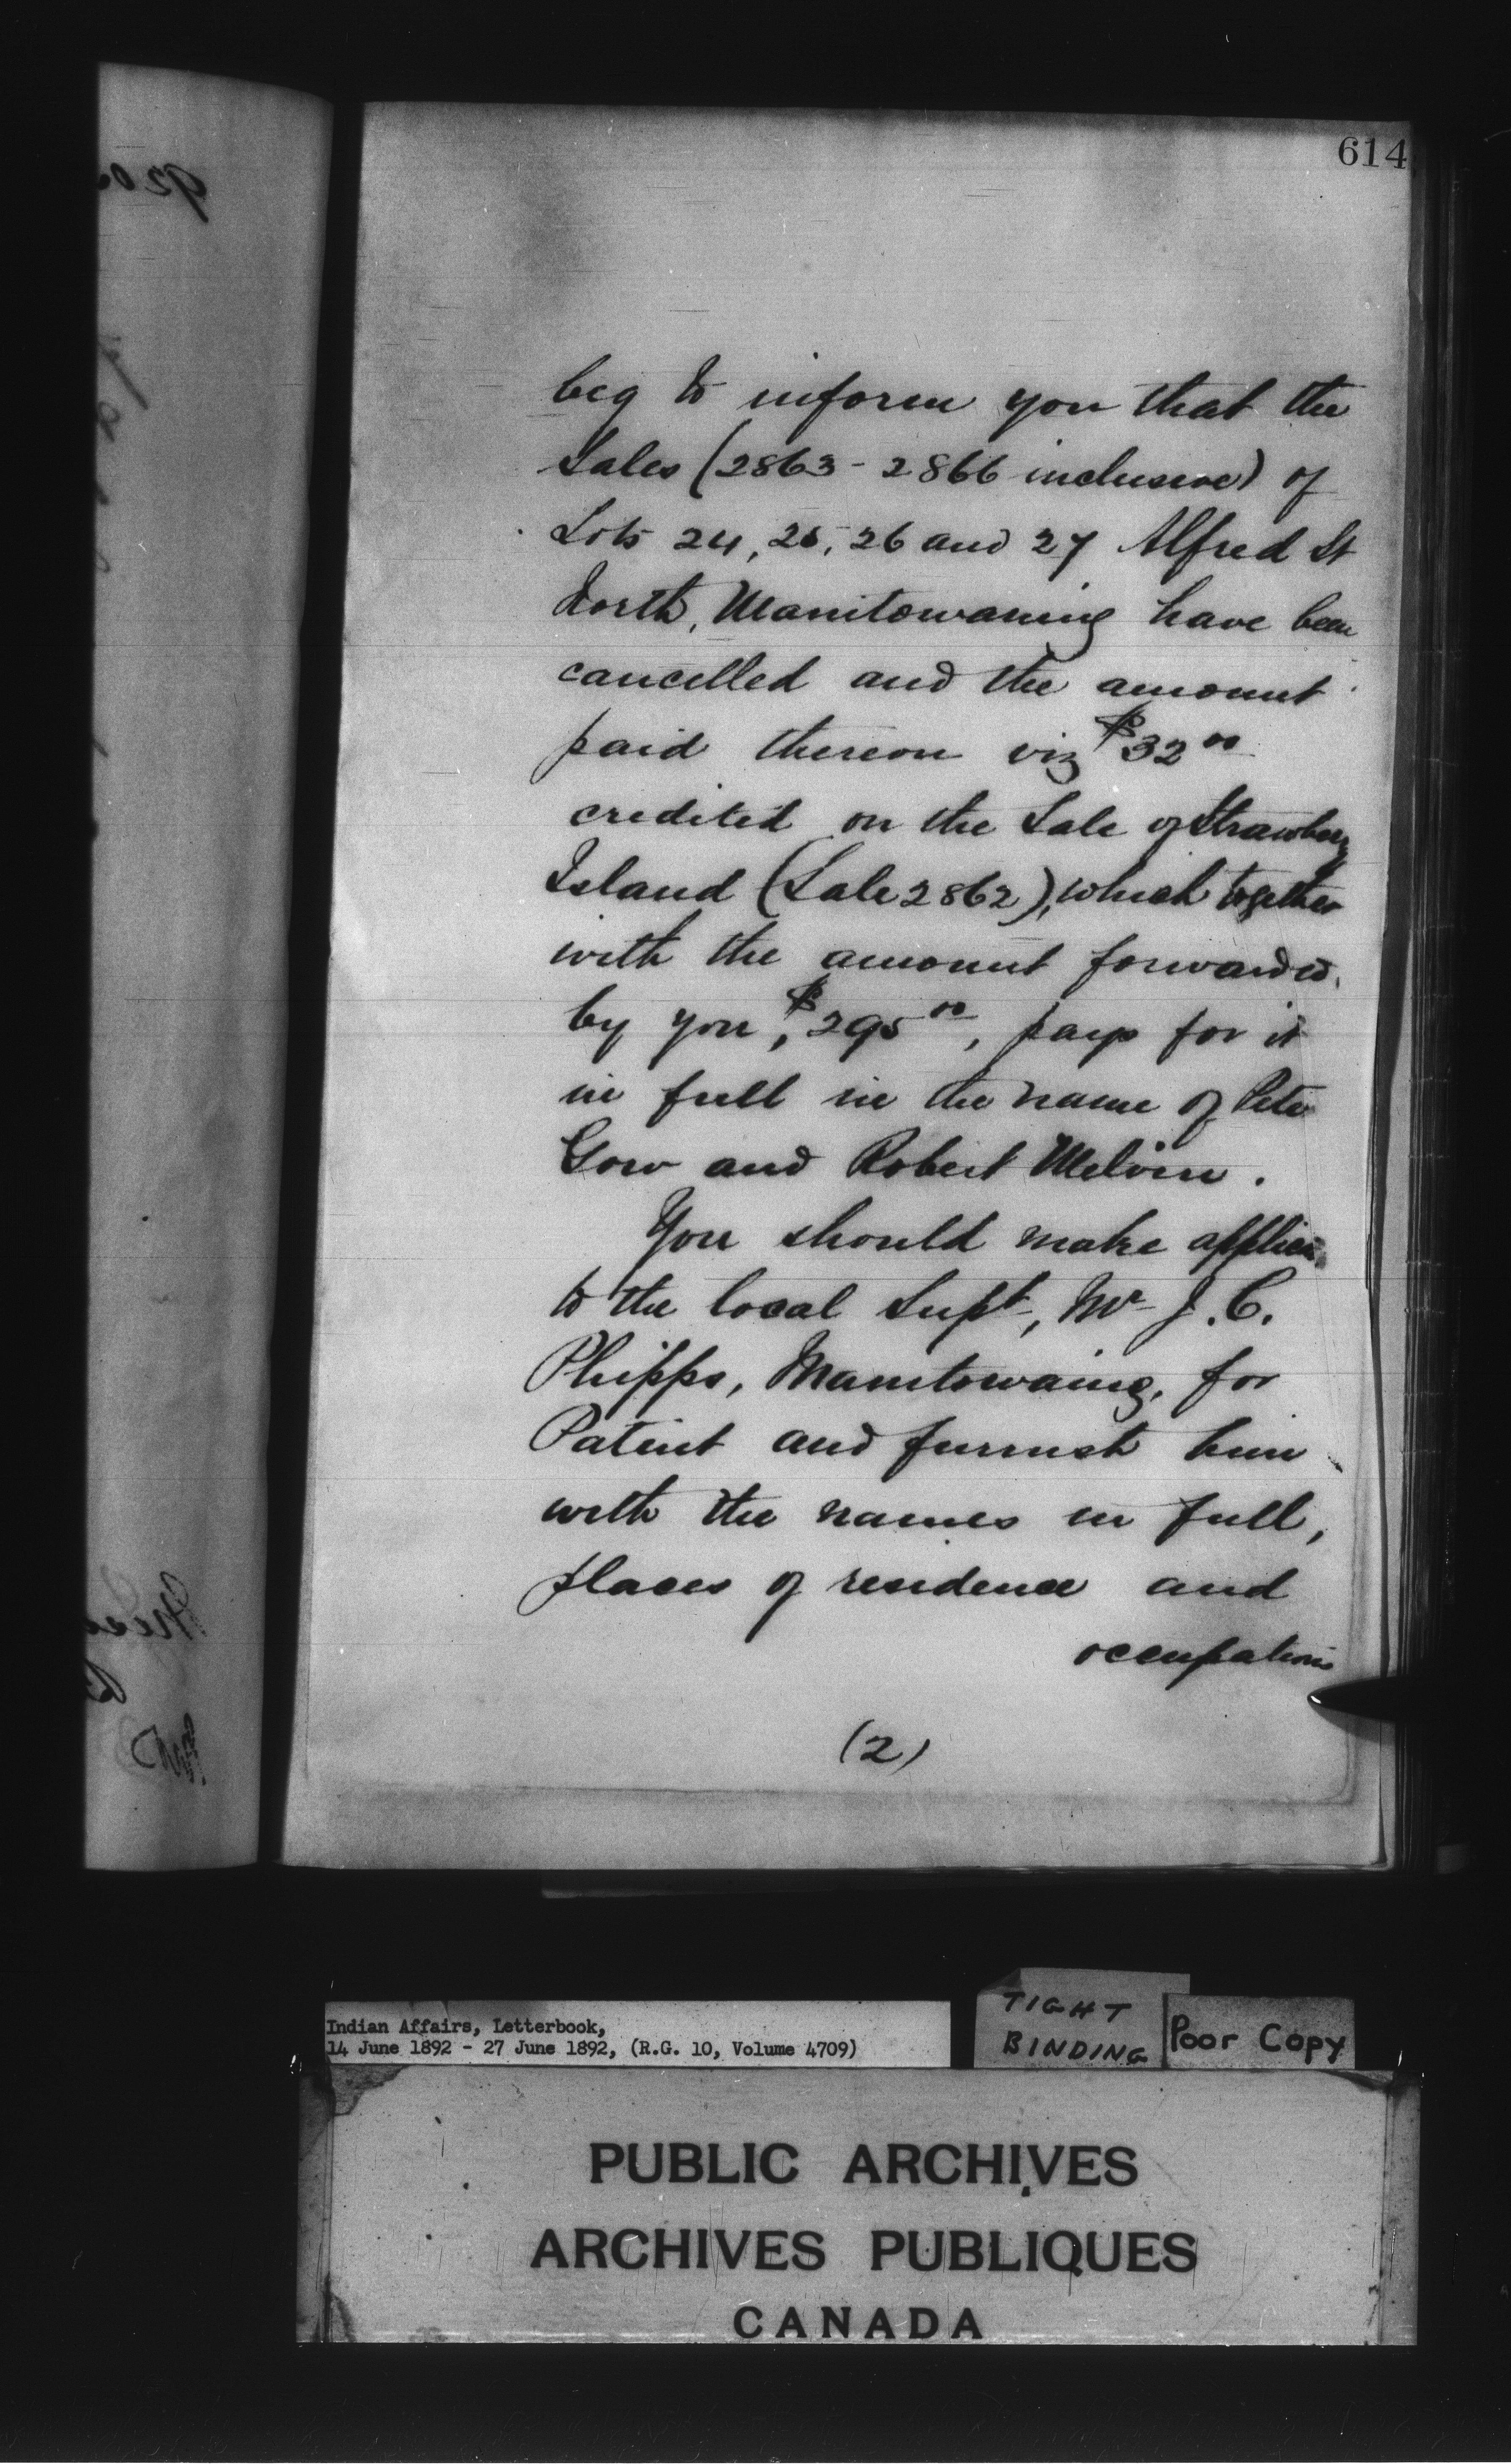 614
beg to inform you that the
Sales (2863 - 2866 inclusive) of
Lots 24, 25, 26 and 27 Alfred St
North, Manitowaning have been
cancelled and the amount
paid thereon viz $32 00
credited on the Sale of Strawberry
Island (Sale 2862), which together
with the amount forwarded
by you, $295 00, pays for it
in full in the name of Peter
Gow and Robert Melvin.
You should make applica
to the local Supt, Mr J. C.
Phipps, Manitowaing, for
Patent and furnish him
with the names in full,
places of residence and
occupations
(2)
Indian Affairs, Letterbook,
14 June 1892 - 27 June 1892, (R.G. 10, Volume 4709)
TIGHT
BINDING
Poor Copy
PUBLIC ARCHIVES
ARCHIVES PUBLIQUES
CANADA